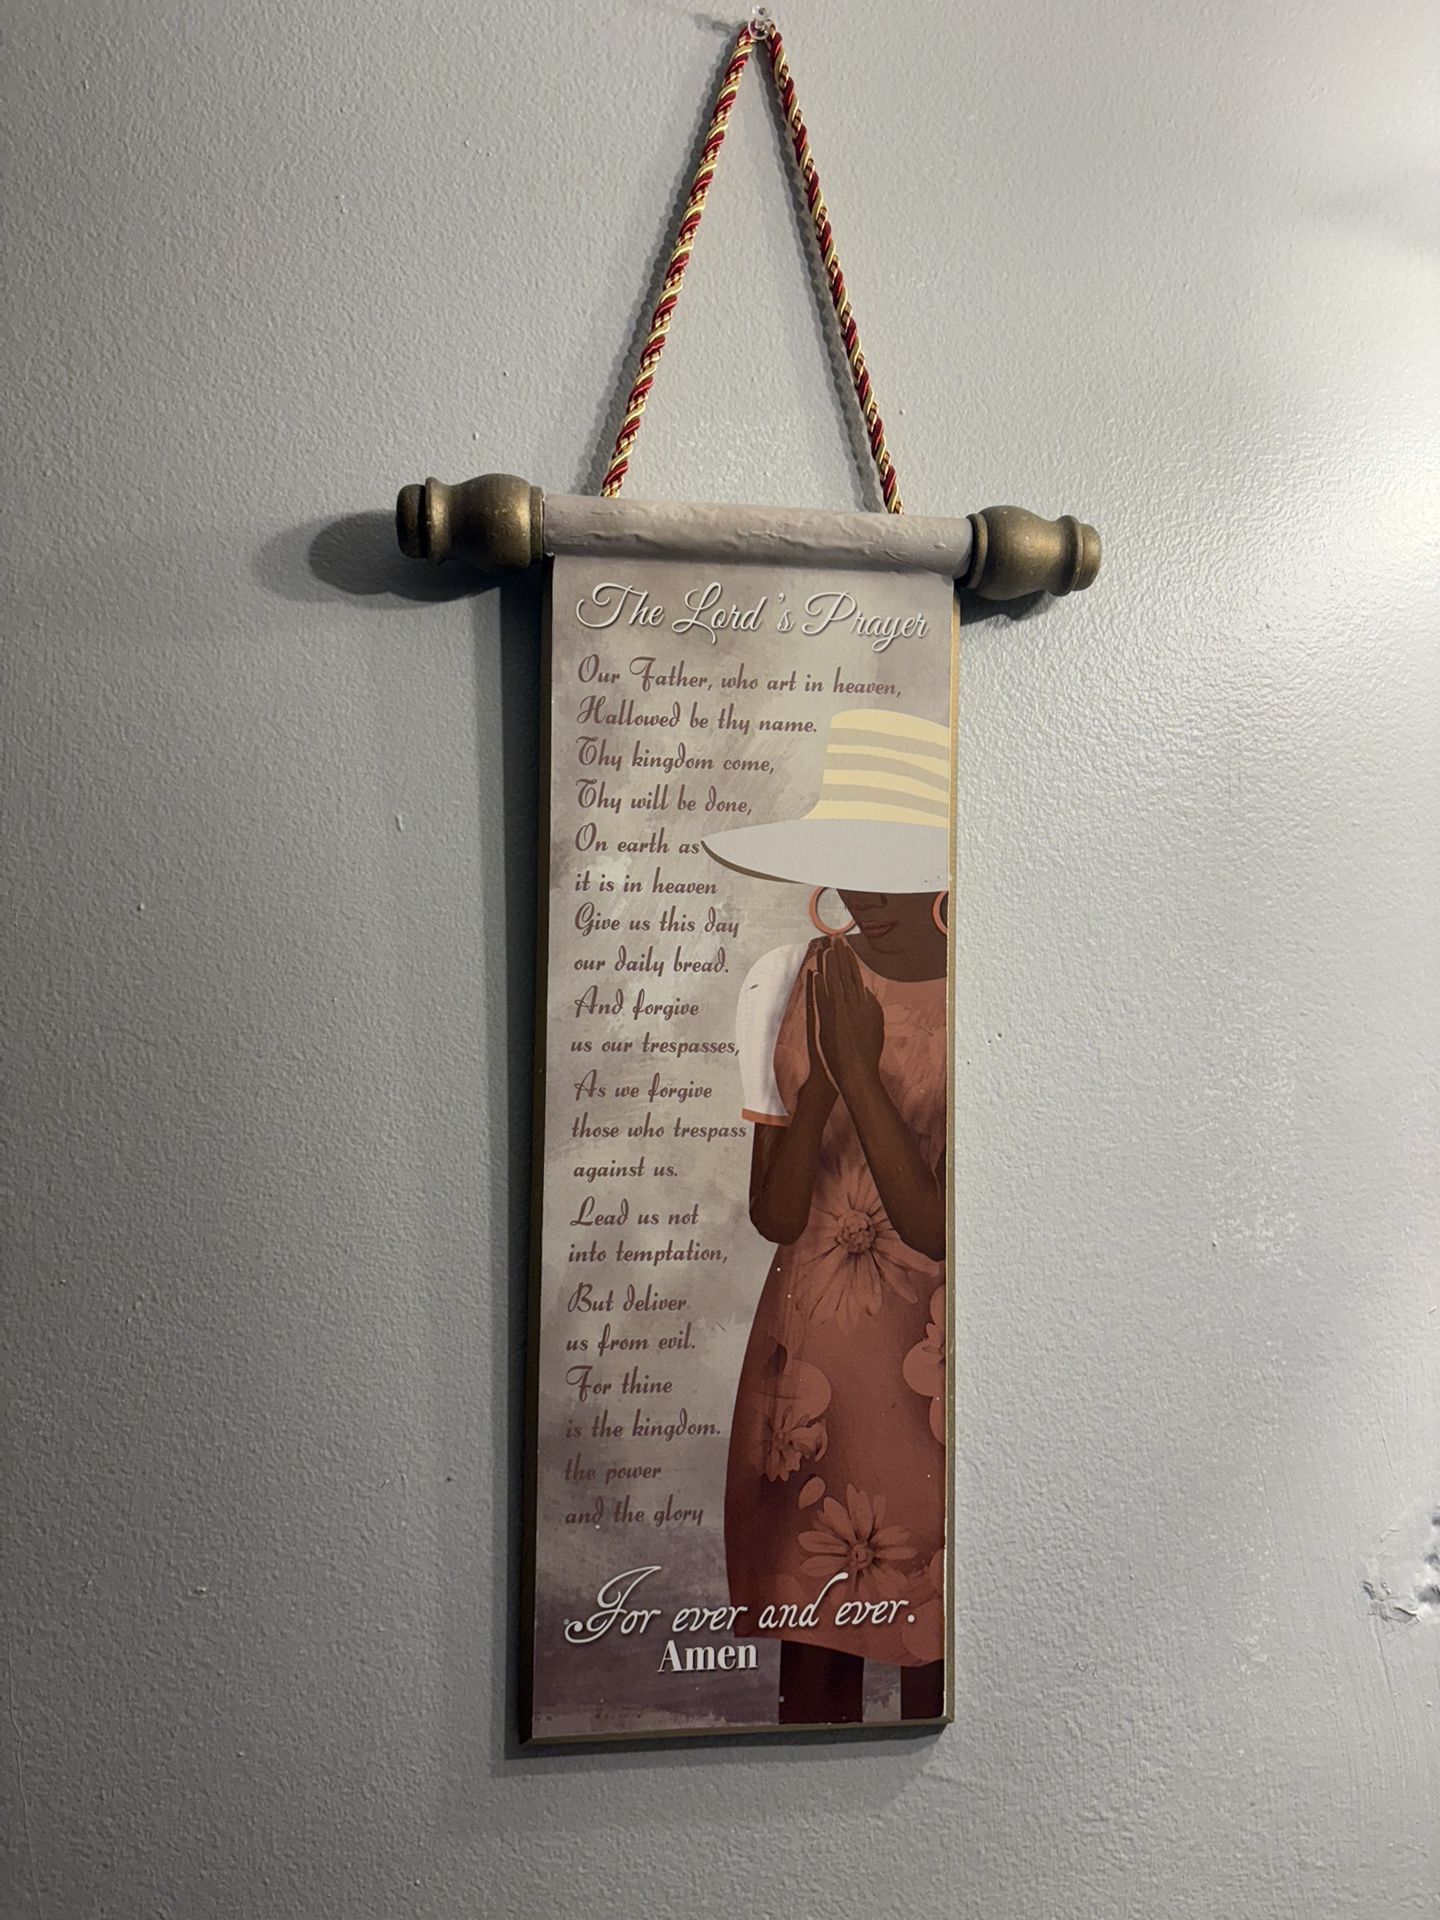 The Lord's Prayer
Our Father, who art in heaven,
Hallowed be thy name.
Thy kingdom come,
Thy will be done,
On earth as
it is in heaven
Give us this day
our daily bread.
And forgive
us our trespasses,
As we forgive
those who trespass
against us.
Lead us not
into temptation,
But deliver
us from evil.
For thine
is the kingdom.
the power
and the glory
For ever and ever.
Amen